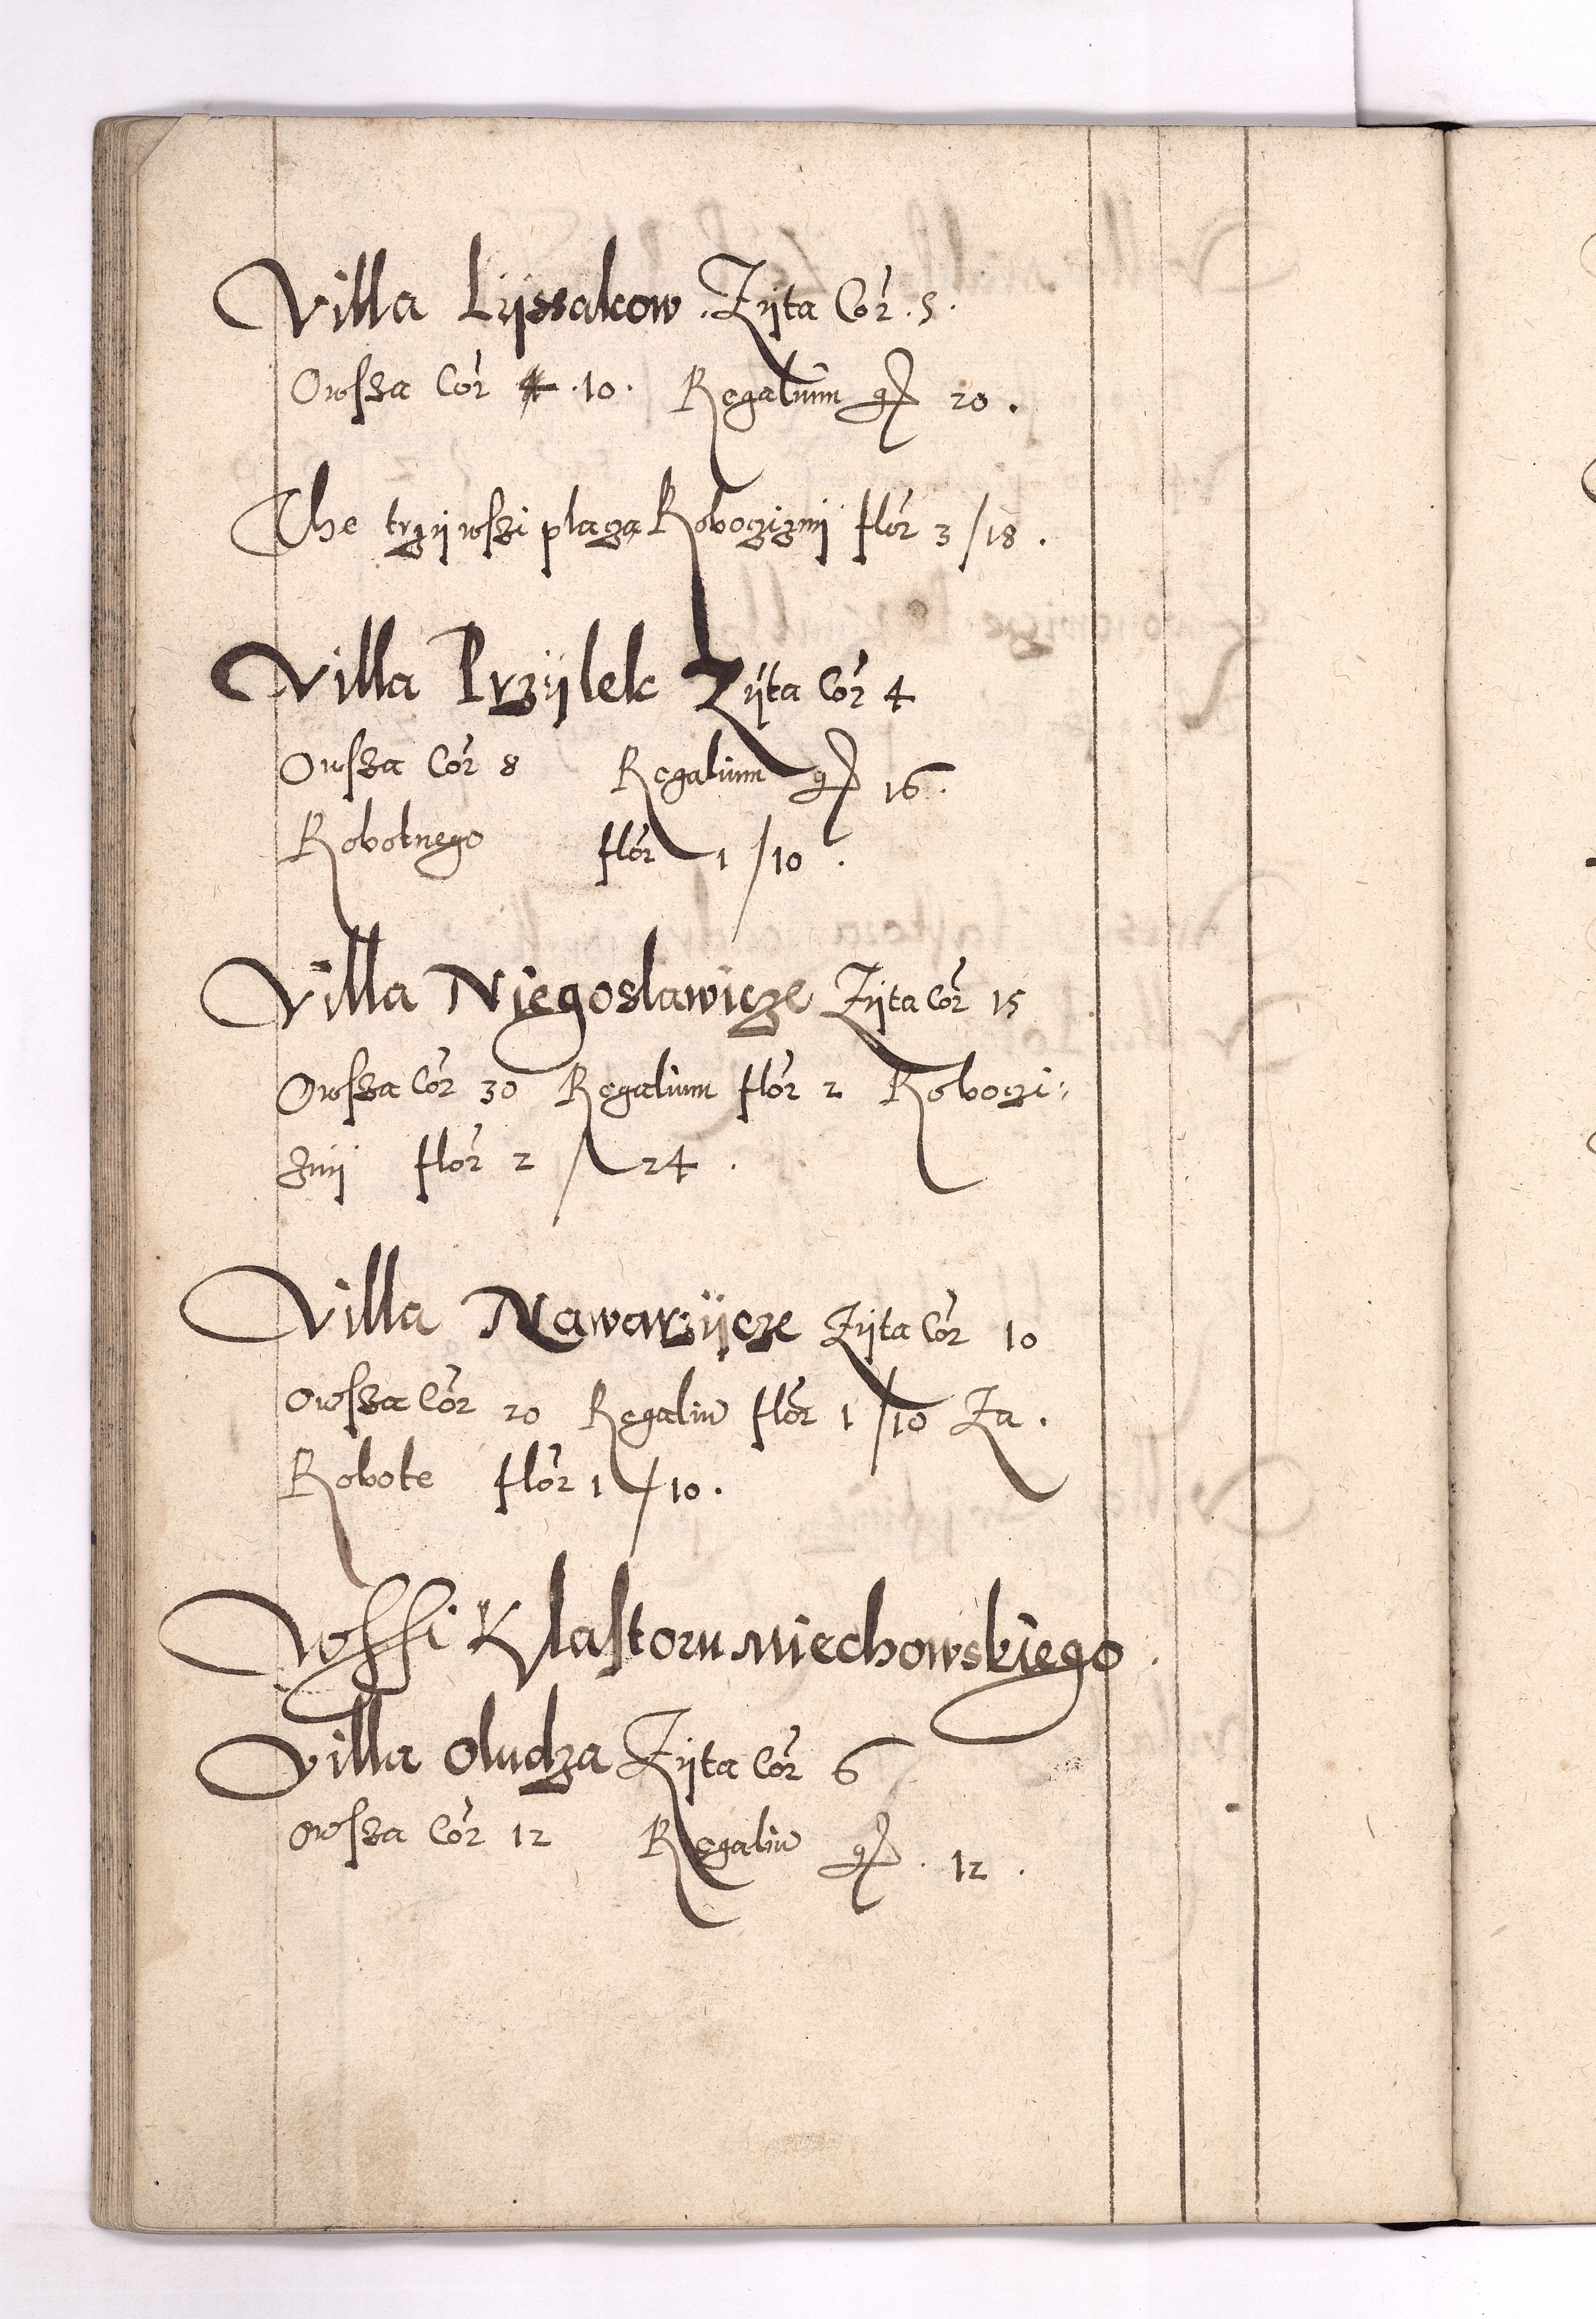 Villa Lyssakow . Zyta Cor . 5 .
Owssa Cor 4 . 10 . Regalium gr 20 .
The trzy wsszi placza Roboczizny flor 3 / 18 .
Villa Przylek Zyta Cor 4
Owssa Cor 8 Regalium gr 16 .
Robotnego flor 1 / 10 .
Villa Niegoslawicze Zyta Cor 15
Owssa Cor 30 Regalium flor 2 Roboczi:
zny flor 2 / 24 .
Villa Nawarzycze Zyta Cor 10
Owssa Cor 20 Regaliu flor 1 / 10 Za .
Robote flor 1 / 10 .
Wssi Klastoru miechowskiego .
Villa Oludza Zyta Cor 6
Owssa Cor 12 Regaliu gr . 12 .